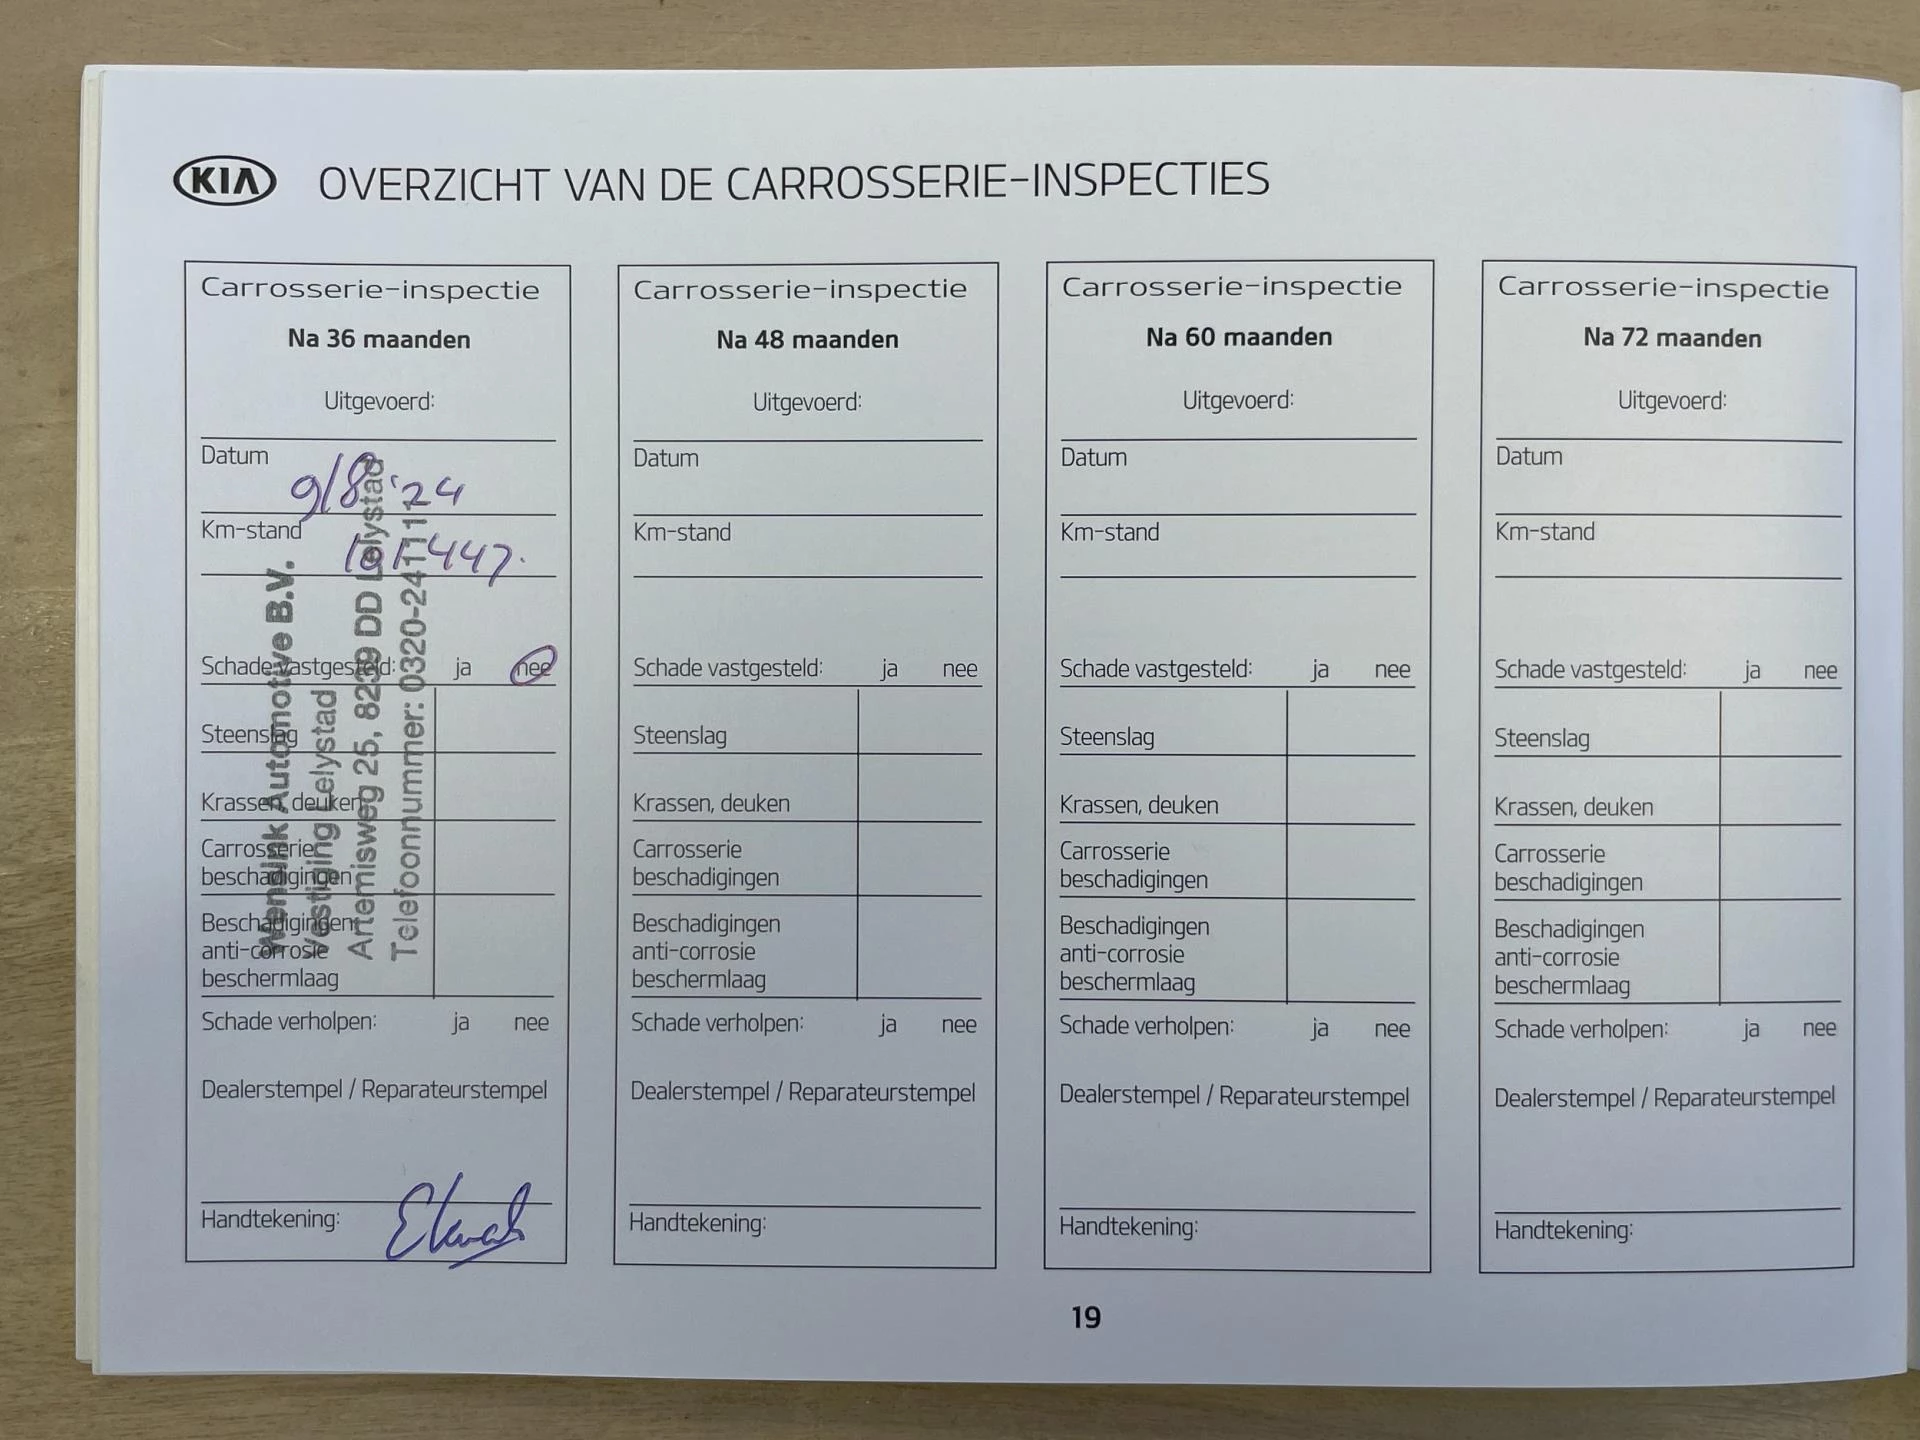 KIA OVERZICHT VAN DE CARROSSERIE-INSPECTIES
Carrosserie-inspectie
Na 36 maanden
Uitgevoerd:
Datum
9/8 '24
Km-stand
101447.
Schade vastgesteld: ja nee
Steenslag
Krassen, deuken
Carrosserie
beschadigingen
Beschadigingen
anti-corrosie
beschermlaag
Schade verholpen: ja nee
Dealerstempel / Reparateurstempel
Handtekening:
Wensink Automotive B.V.
Vestiging Lelystad
Artemisweg 25, 8239 DD Lelystad
Telefoonnummer: 0320-241112
Carrosserie-inspectie
Na 48 maanden
Uitgevoerd:
Datum
Km-stand
Schade vastgesteld: ja nee
Steenslag
Krassen, deuken
Carrosserie
beschadigingen
Beschadigingen
anti-corrosie
beschermlaag
Schade verholpen: ja nee
Dealerstempel / Reparateurstempel
Handtekening:
Carrosserie-inspectie
Na 60 maanden
Uitgevoerd:
Datum
Km-stand
Schade vastgesteld: ja nee
Steenslag
Krassen, deuken
Carrosserie
beschadigingen
Beschadigingen
anti-corrosie
beschermlaag
Schade verholpen: ja nee
Dealerstempel / Reparateurstempel
Handtekening:
Carrosserie-inspectie
Na 72 maanden
Uitgevoerd:
Datum
Km-stand
Schade vastgesteld: ja nee
Steenslag
Krassen, deuken
Carrosserie
beschadigingen
Beschadigingen
anti-corrosie
beschermlaag
Schade verholpen: ja nee
Dealerstempel / Reparateurstempel
Handtekening:
19